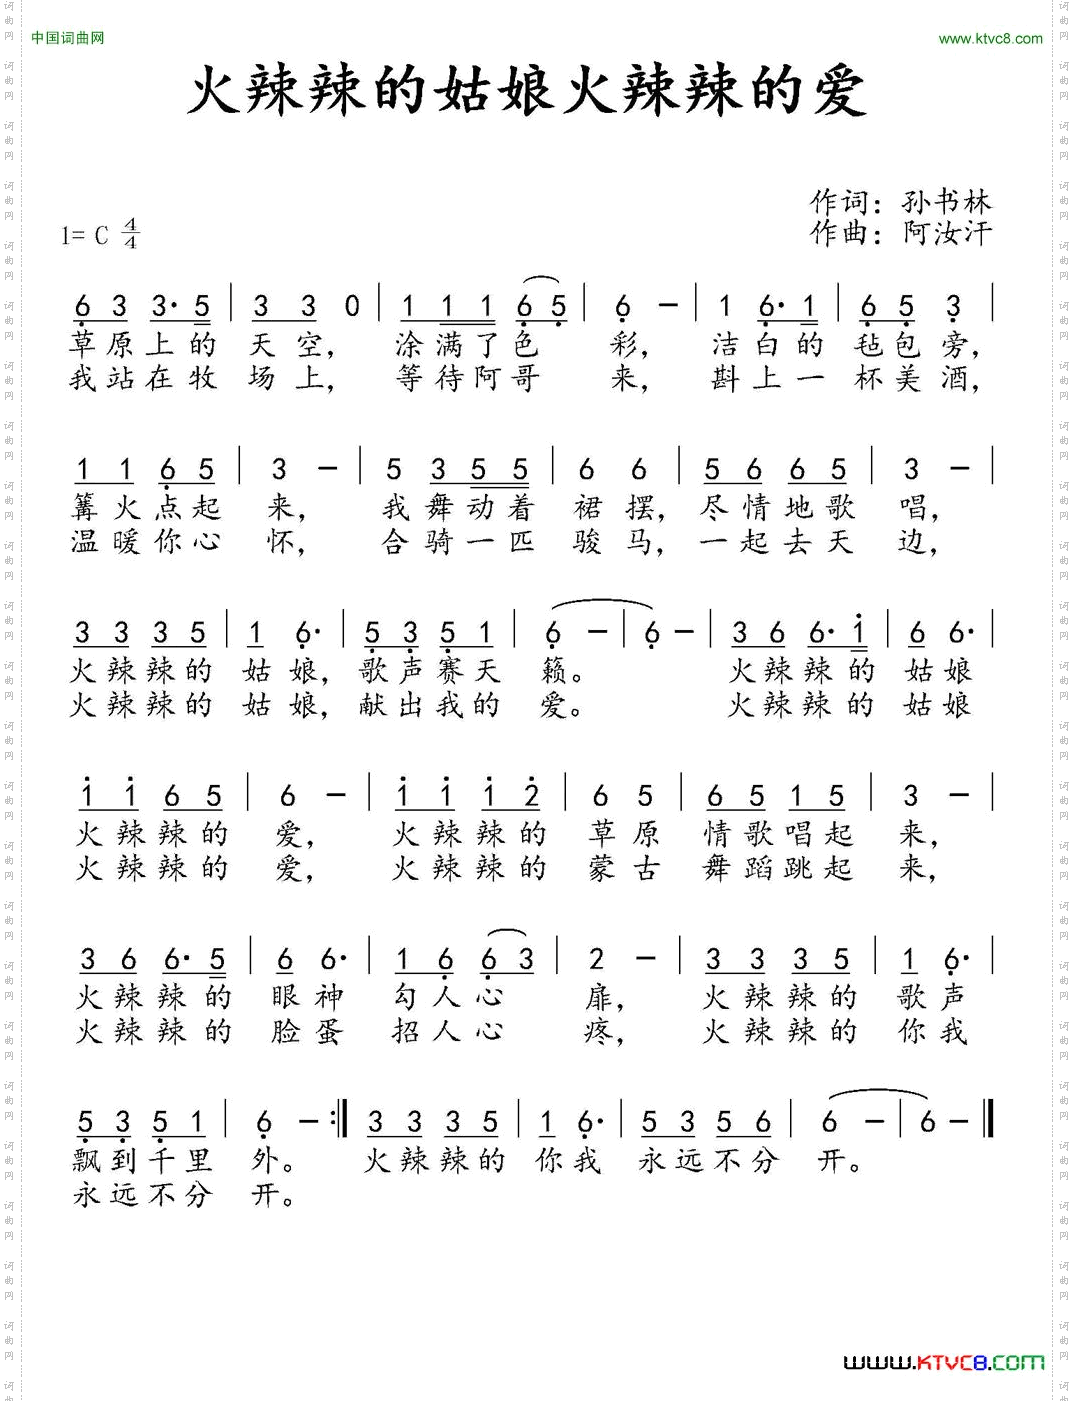 中国词曲网 www.ktvc8.com
火辣辣的姑娘火辣辣的爱
作词：孙书林
1= C 4/4 作曲：阿汝汗
6 3 3· 5 | 3 3 0 | 1 1 1 6 5 | 6 － | 1 6· 1 | 6 5 3 |
草原上的 天空， 涂满了色 彩， 洁白的 毡包旁，
我站在牧 场上， 等待阿哥 来， 斟上一 杯美酒，
1 1 6 5 | 3 － | 5 3 5 5 | 6 6 | 5 6 6 5 | 3 － |
篝火点起 来， 我舞动着 裙摆， 尽情地歌 唱，
温暖你心 怀， 合骑一匹 骏马， 一起去天 边，
3 3 3 5 | 1 6· | 5 3 5 1 | 6 － | 6 － | 3 6 6· 1 | 6 6· |
火辣辣的 姑娘， 歌声赛天 籁。 火辣辣的 姑娘
火辣辣的 姑娘， 献出我的 爱。 火辣辣的 姑娘
1 1 6 5 | 6 － | 1 1 1 2 | 6 5 | 6 5 1 5 | 3 － |
火辣辣的 爱， 火辣辣的 草原 情歌唱起 来，
火辣辣的 爱， 火辣辣的 蒙古 舞蹈跳起 来，
3 6 6· 5 | 6 6· | 1 6 6 3 | 2 － | 3 3 3 5 | 1 6· |
火辣辣的 眼神 勾人心 扉， 火辣辣的 歌声
火辣辣的 脸蛋 招人心 疼， 火辣辣的 你我
5 3 5 1 | 6 － :‖ 3 3 3 5 | 1 6· | 5 3 5 6 | 6 － | 6 － ‖
飘到千里 外。 火辣辣的 你我 永远不分 开。
永远不分 开。
www.KTVC8.com